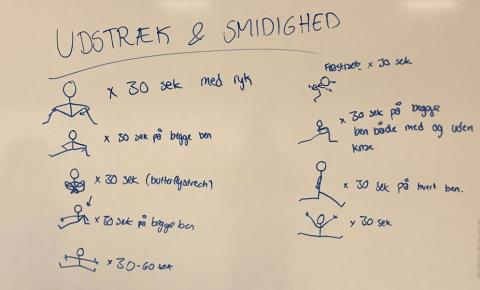 UDSTRÆK & SMIDIGHED
x 30 sek med ryk
x 30 sek på begge ben
x 30 sek (butterflystrech)
x 30 sek på begge ben
x 30-60 sek
x 30 sek
x 30 sek på begge
ben både med og uden
x 30 sek på hvert ben.
x 30 sek